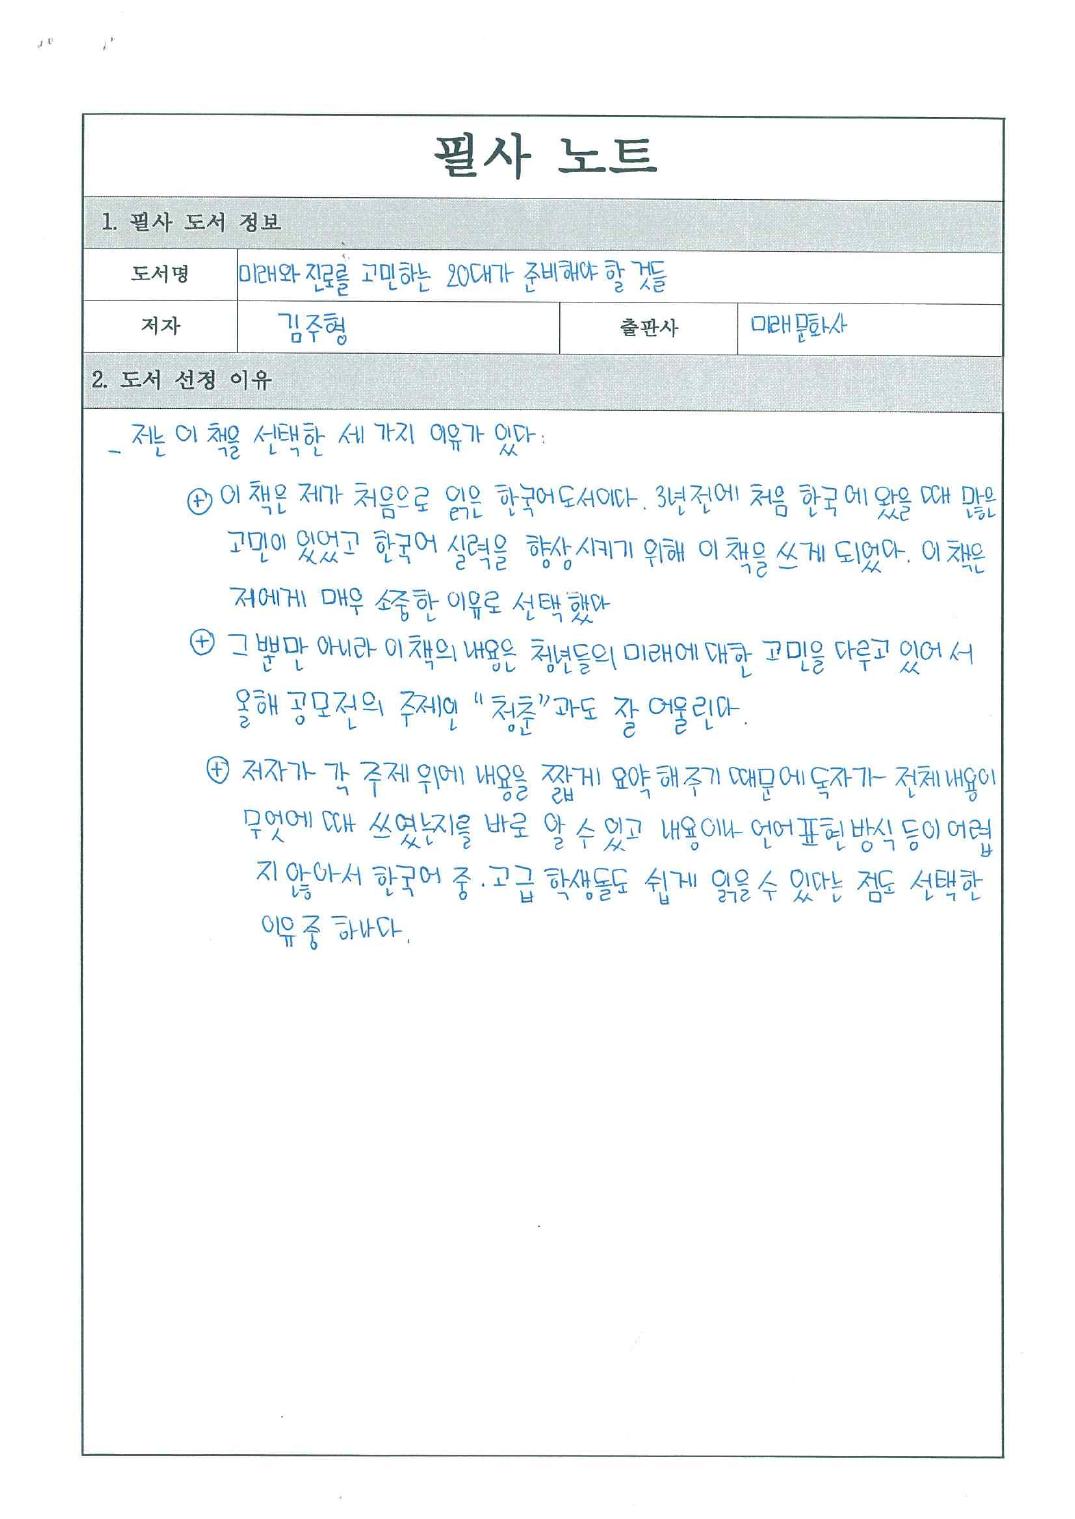 필사 노트
1. 필사 도서 정보
도서명 미래와 진로를 고민하는 20대가 준비해야 할 것들
저자 김주형 출판사 미래문화사
2. 도서 선정 이유
_ 저는 이 책을 선택한 세 가지 이유가 있다:
⊕ 이 책은 제가 처음으로 읽은 한국어도서이다. 3년전에 처음 한국에 왔을 때 많은
고민이 있었고 한국어 실력을 향상시키기 위해 이 책을 쓰게 되었다. 이 책은
저에게 매우 소중한 이유로 선택했다
⊕ 그뿐만 아니라 이 책의 내용은 청년들의 미래에 대한 고민을 다루고 있어서
올해 공모전의 주제인 "청춘"과도 잘 어울린다.
⊕ 저자가 각 주제 위에 내용을 짧게 요약해주기 때문에 독자가 전체내용이
무엇에 때 쓰였는지를 바로 알 수 있고 내용이나 언어표현 방식 등이 어렵
지 않아서 한국어 중.고급 학생들도 쉽게 읽을 수 있다는 점도 선택한
이유 중 하나다.